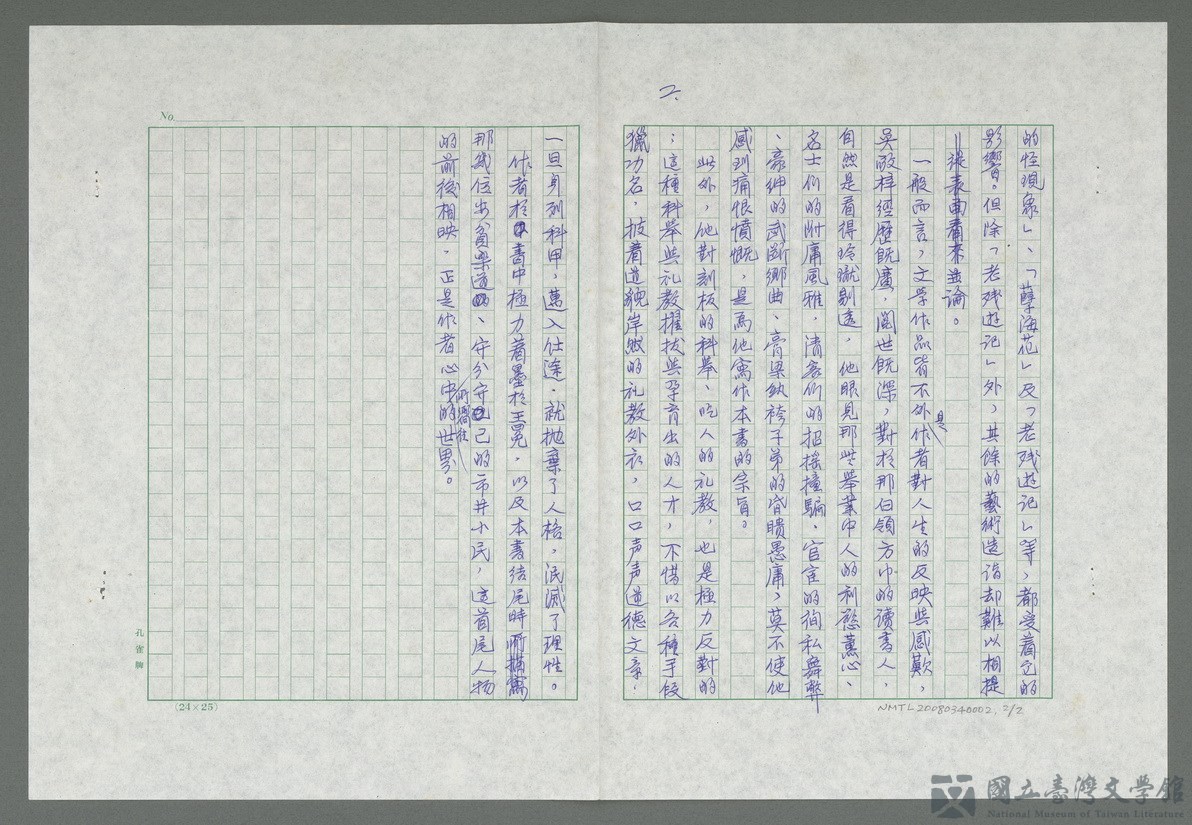 2.
的怪現象」、「孽海花」及「老残遊記」等，都受着它的
影響。但除「老残遊記」外，其餘的藝術造詣却難以相提
並論。
一般而言，文學作品皆不外是作者對人生的反映与感歎，
吳敬梓經歷既廣，閱世既深，對於那白領方巾的讀書人，
自然是看得玲瓏剔透，他眼見那些舉業中人的利慾薰心、
名士们的附庸風雅，清客们的招搖撞騙、官宦的狥私舞弊
、豪紳的武斷鄉曲、膏梁紈袴子弟的昏瞶愚庸，莫不使他
感到痛恨憤慨，是爲他寫作本書的宗旨。
此外，他對刻板的科舉、吃人的礼教，也是極力反對的
；這種科舉与礼教擢拔与孕育出的人才，不惜以各種手段
獵功名，披着道貌岸然的礼教外衣，口口声声道德文章，
一旦身列科甲，邁入仕途，就抛棄了人格，泯滅了理性。
作者於書中極力着墨於王冕，以及本書結尾時所描寫
那幾位安貧樂道、守分守己的市井小民，這首尾人物
的前後相映，正是作者心中所嚮往的世界。
No
孔雀牌
(24×25)
NMTL20080340002, 2/2
國立臺灣文學館
National Museum of Taiwan Literature